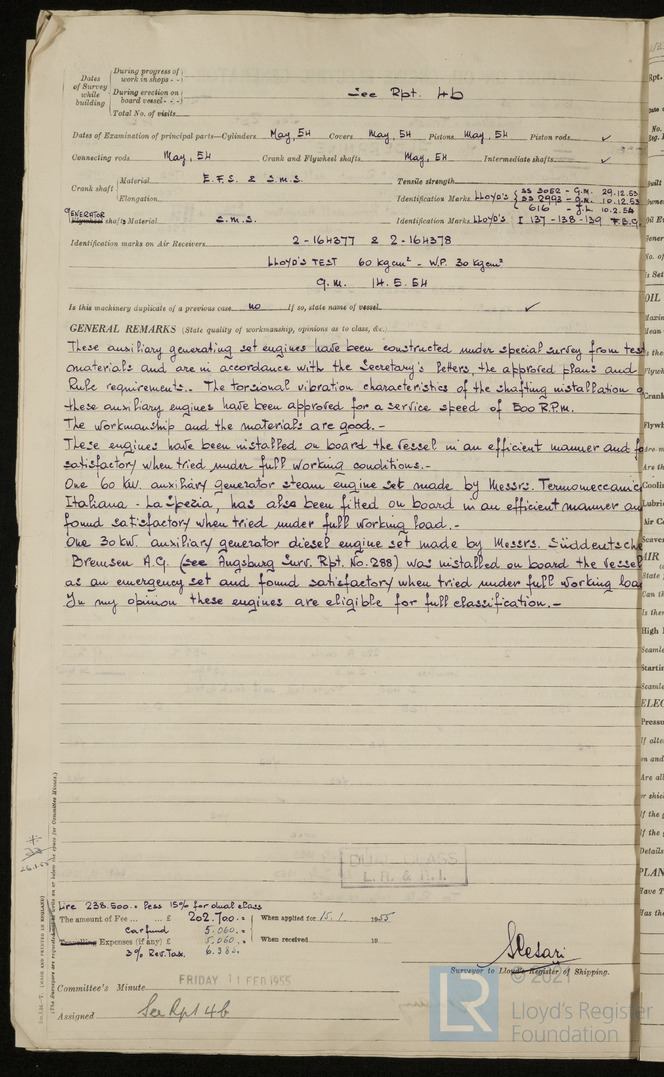 Dates of Survey while building
During progress of work in shops - -
During erection on board vessel - - -
Total No. of visits
See Rpt. 4b
Dates of Examination of principal parts—Cylinders May, 54 Covers May, 54 Pistons May, 54 Piston rods ✓
Connecting rods May, 54 Crank and Flywheel shafts May, 54 Intermediate shafts ✓
Crank shaft Material E.F.S. & S.M.S. Tensile strength
Elongation Identification Marks LLOYD'S SS 3052 - G.M. 29.12.53
SS 2993 - G.M. 10.12.53
616 - J.L. 10.2.54
GENERATOR
Flywheel shafts Material S.M.S. Identification Marks LLOYD'S I 137-138-139 F.B.G.
Identification marks on Air Receivers 2-164377 & 2-164378
LLOYD'S TEST 60 kgcm² - W.P. 30 kgcm²
G.M. 14.5.54
Is this machinery duplicate of a previous case no If so, state name of vessel ✓
GENERAL REMARKS (State quality of workmanship, opinions as to class, &c.)
These auxiliary generating set engines have been constructed under special survey from test
materials and are in accordance with the Secretary's letters, the approved plans and
Rule requirements.. The torsional vibration characteristics of the shafting installation o
these auxiliary engines have been approved for a service speed of 500 R.P.M.
The workmanship and the materials are good.-
These engines have been installed on board the vessel in an efficient manner and fo
satisfactory when tried under full working conditions.-
One 60 KW. auxiliary generator steam engine set made by Messrs. Termomeccanic
Italiana - La Spezia, has also been fitted on board in an efficient manner an
found satisfactory when tried under full working load.-
One 30 KW. auxiliary generator diesel engine set made by Messrs. Süddeutsche
Bremsen A.G. (see Augsburg Surv. Rpt. No. 288) was installed on board the vessel
as an emergency set and found satisfactory when tried under full working loa
In my opinion these engines are eligible for full classification.-
DUAL CLASS
L.R. & R.I.
Lire 238.500.= less 15% for dual class
The amount of Fee ... ... £ 202.700.= When applied for 15.1 1955
Car fund 5.060.=
Travelling Expenses (if any) £ 5.060.= When received 19
3% Rev. Tax.
Surveyor to Lloyd's Register of Shipping.
FRIDAY 11 FEB 1955
Committee's Minute
Assigned See Rpt 4b
© 2021
LR
Lloyd's Register
Foundation